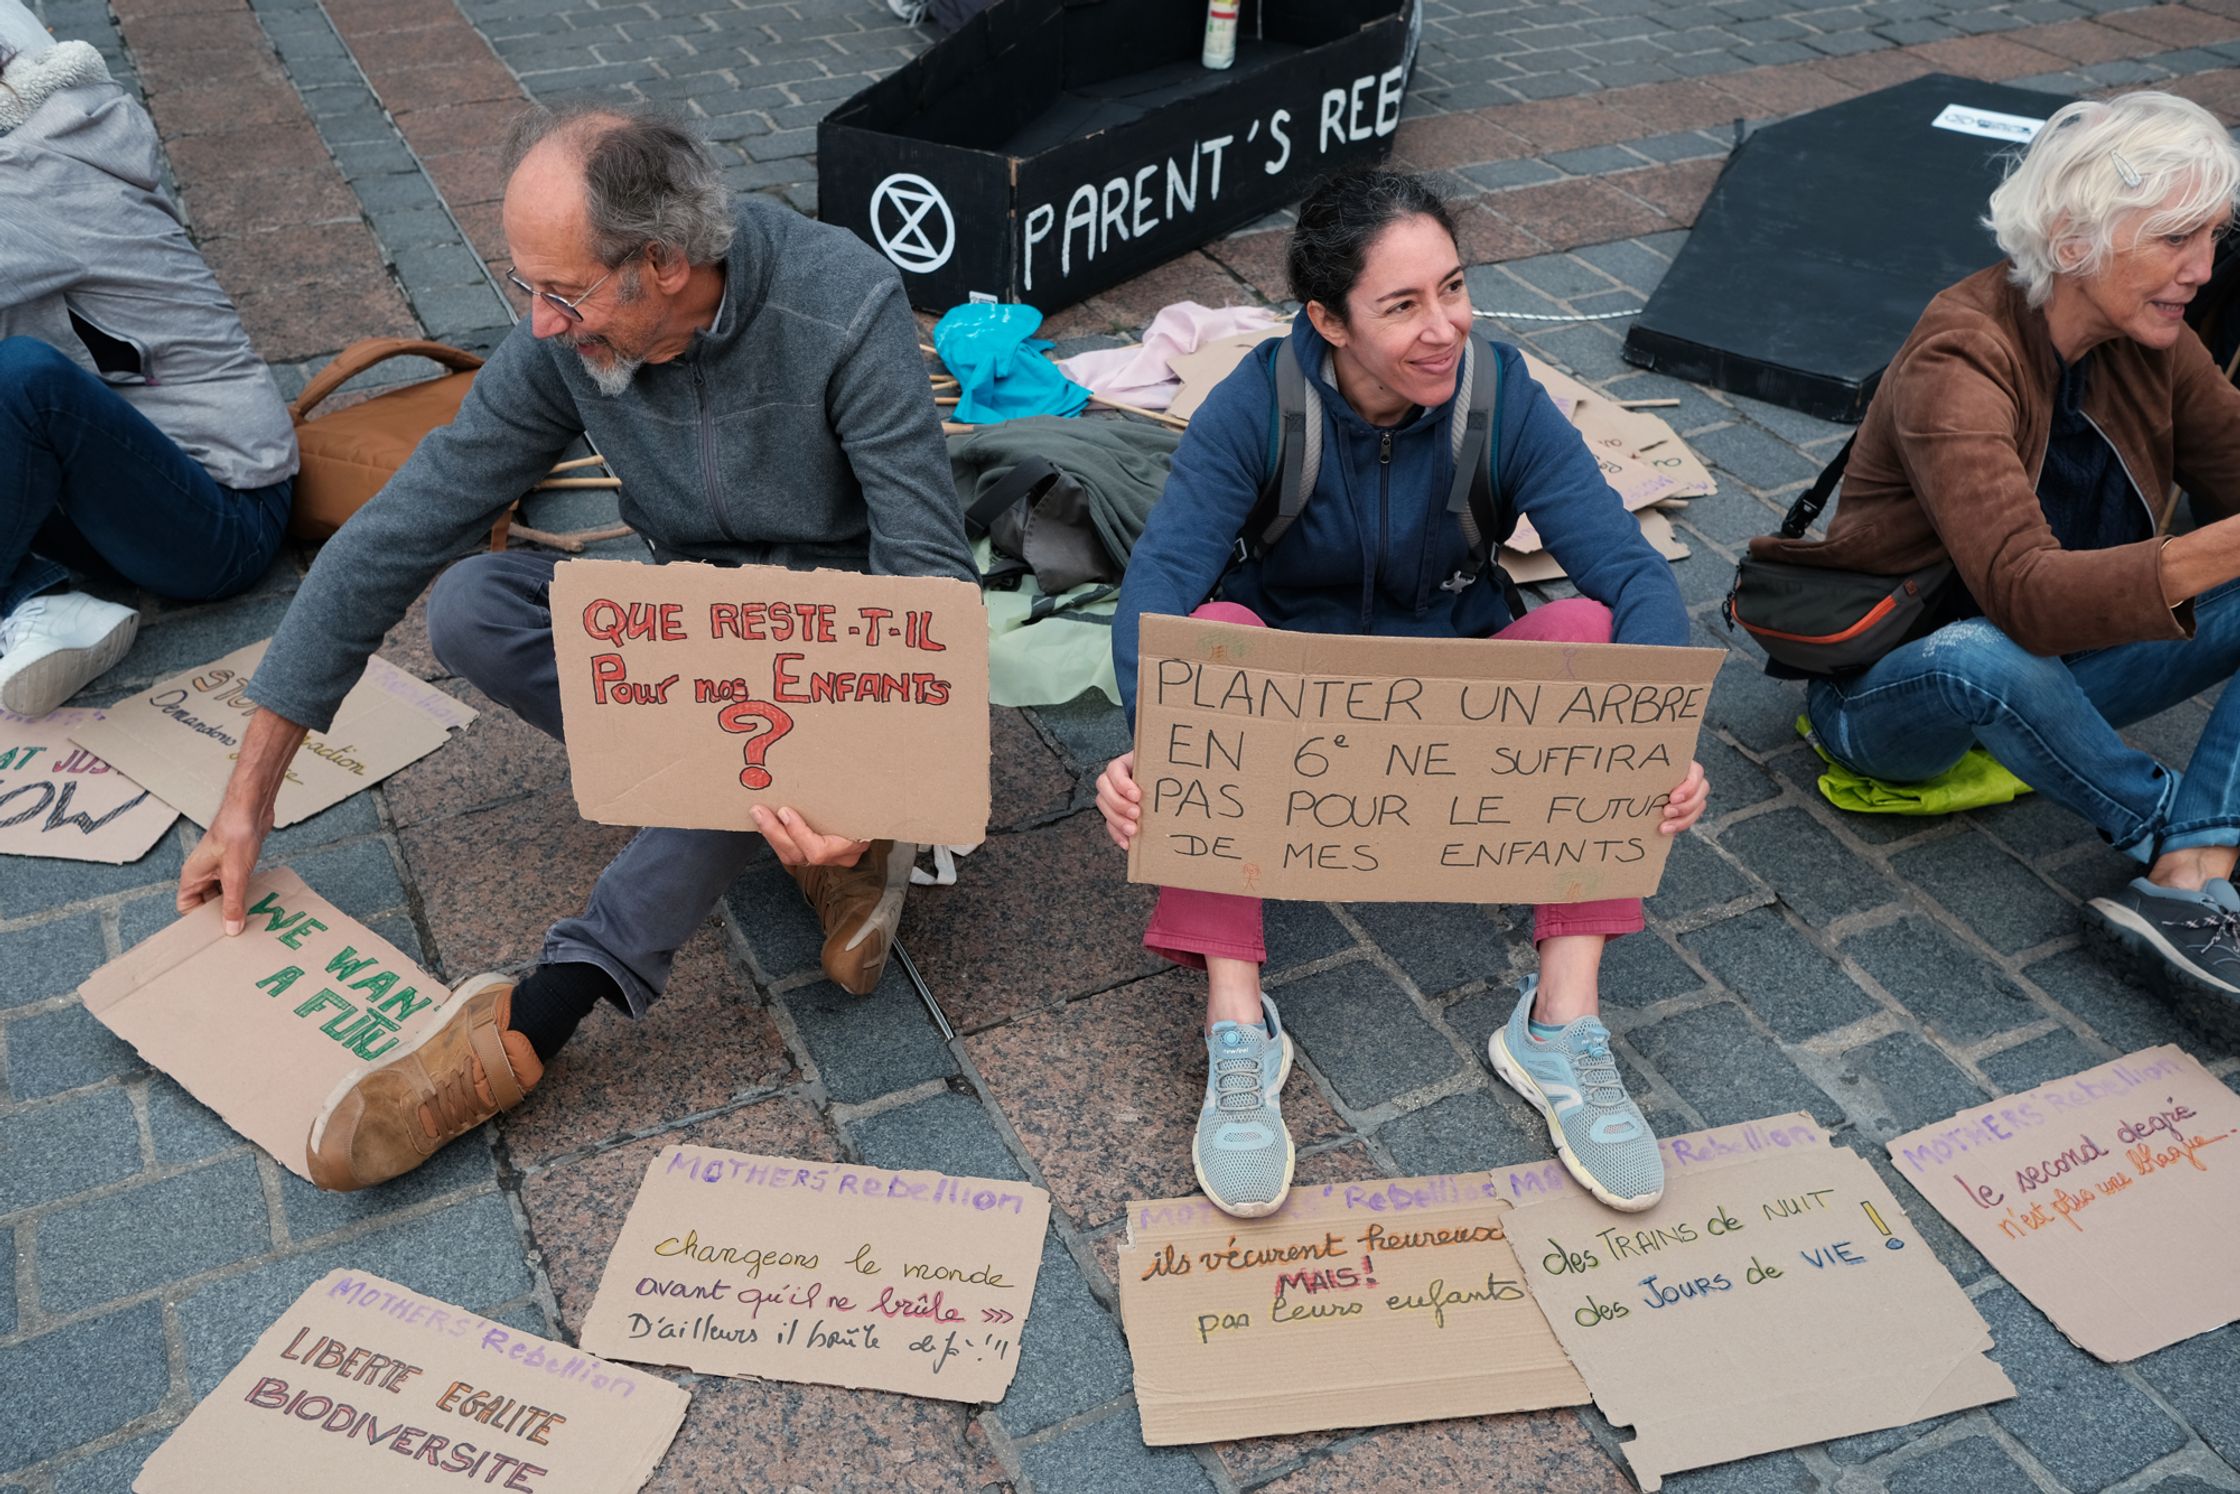 PARENT'S REB
QUE RESTE-T-IL
POUR nos ENFANTS
?
PLANTER UN ARBRE
EN 6e NE SUFFIRA
PAS POUR LE FUTUR
DE MES ENFANTS
Rebellion
Demandons
AT JUS
WE WANT
A FUTU
MOTHERS' Rebellion
changeons le monde
avant qu'il ne brûle >>>
D'ailleurs il brûle déjà !!!
MOTHERS' Rebellion
LIBERTE EGALITE
BIODIVERSITE
Rebellion
ils vécurent heureux
MAIS!
pas leurs enfants
Rebellion
des TRAINS de NUIT
des JOURS de VIE !
MOTHERS' Rebellion
le second degré
n'est plus une blague.
newfeel